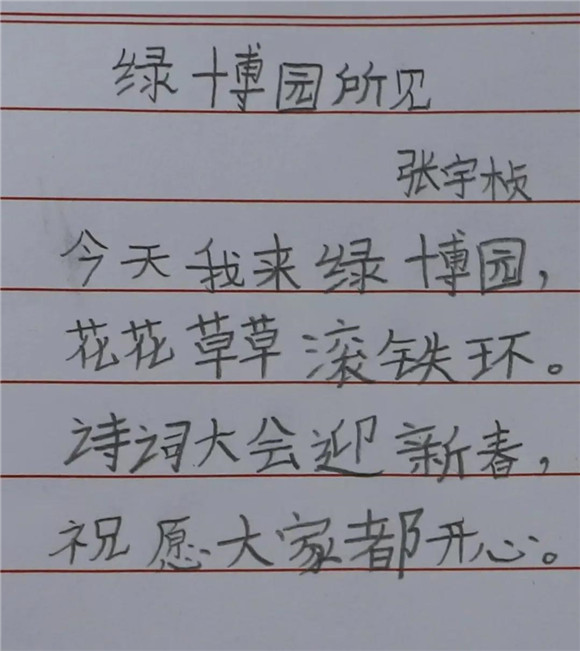 绿博园所见
张宇桢
今天我来绿博园，
花花草草滚铁环。
诗词大会迎新春，
祝愿大家都开心。